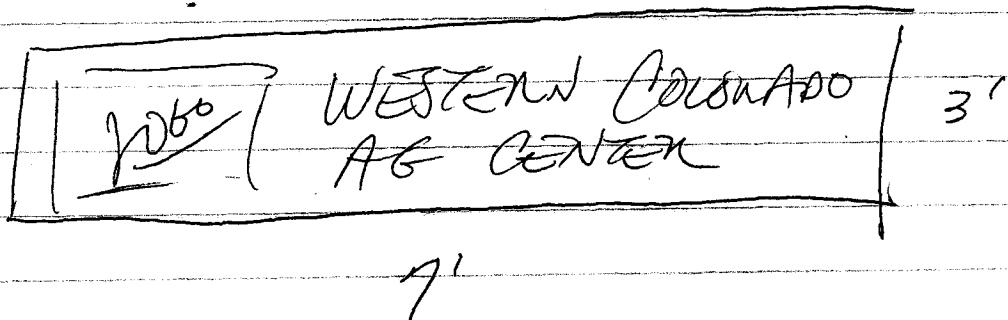 LOGO
WESTERN COLORADO
AG CENTER
3'
7'